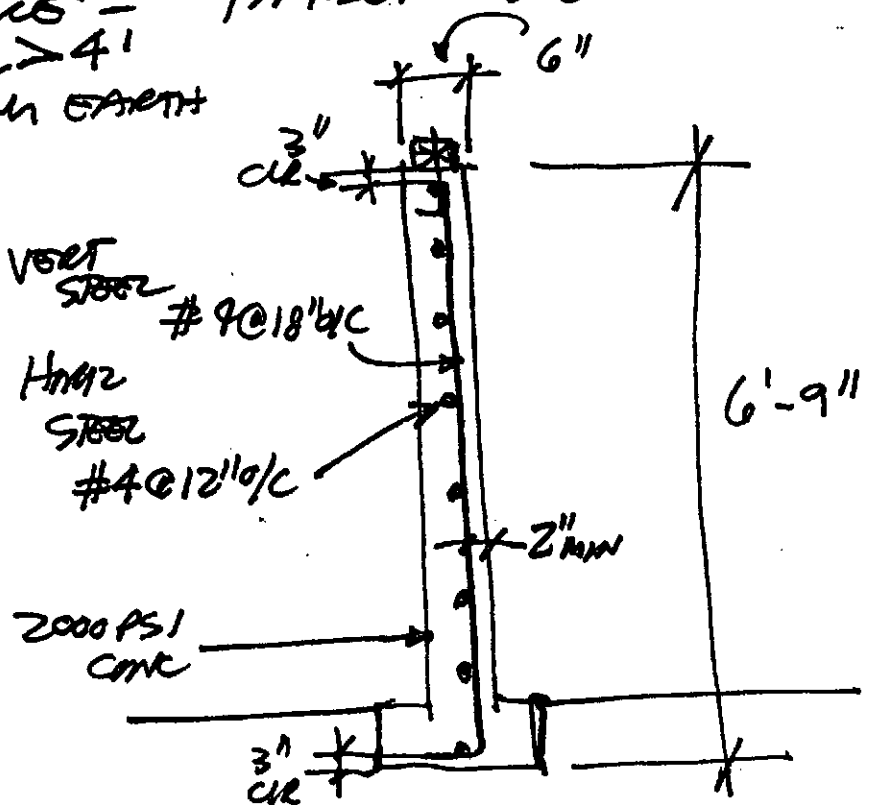 >4'
EARTH
6"
3"
CLR
VERT
STEEL
# 4@18"o/c
HORIZ
STEEL
#4@12"o/c
6'-9"
2" MIN
2000 PSI
CONC
3"
CLR